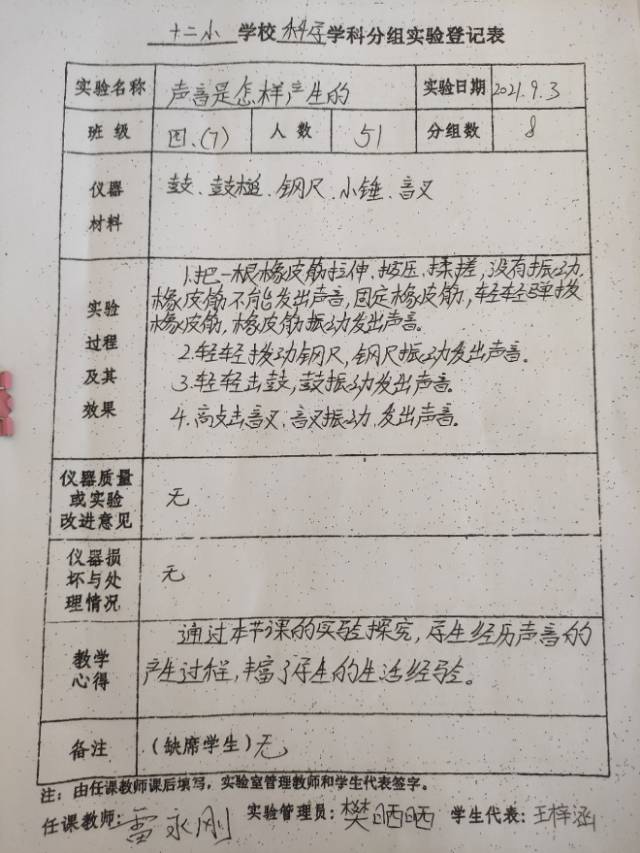 十二小 学校 科学 学科分组实验登记表
实验名称 声音是怎样产生的 实验日期 2021.9.3
班级 四.(7) 人数 51 分组数 8
仪器 鼓、鼓槌、钢尺、小锤、音叉
材料
实验
过程
及其
效果
1.把一根橡皮筋拉伸、挤压、揉搓,没有振动,
橡皮筋不能发出声音,固定橡皮筋,轻轻弹拨
橡皮筋,橡皮筋振动发出声音。
2.轻轻拨动钢尺,钢尺振动发出声音。
3.轻轻击鼓,鼓振动发出声音。
4.敲击音叉,音叉振动,发出声音。
仪器质量
或实验
改进意见
无
仪器损
坏与处
理情况
无
教学
心得
通过本节课的实验探究,学生经历声音的
产生过程,丰富了学生的生活经验。
备注 (缺席学生)无
注:由任课教师课后填写,实验室管理教师和学生代表签字。
任课教师:雷永刚 实验管理员:樊晒晒 学生代表:王梓涵